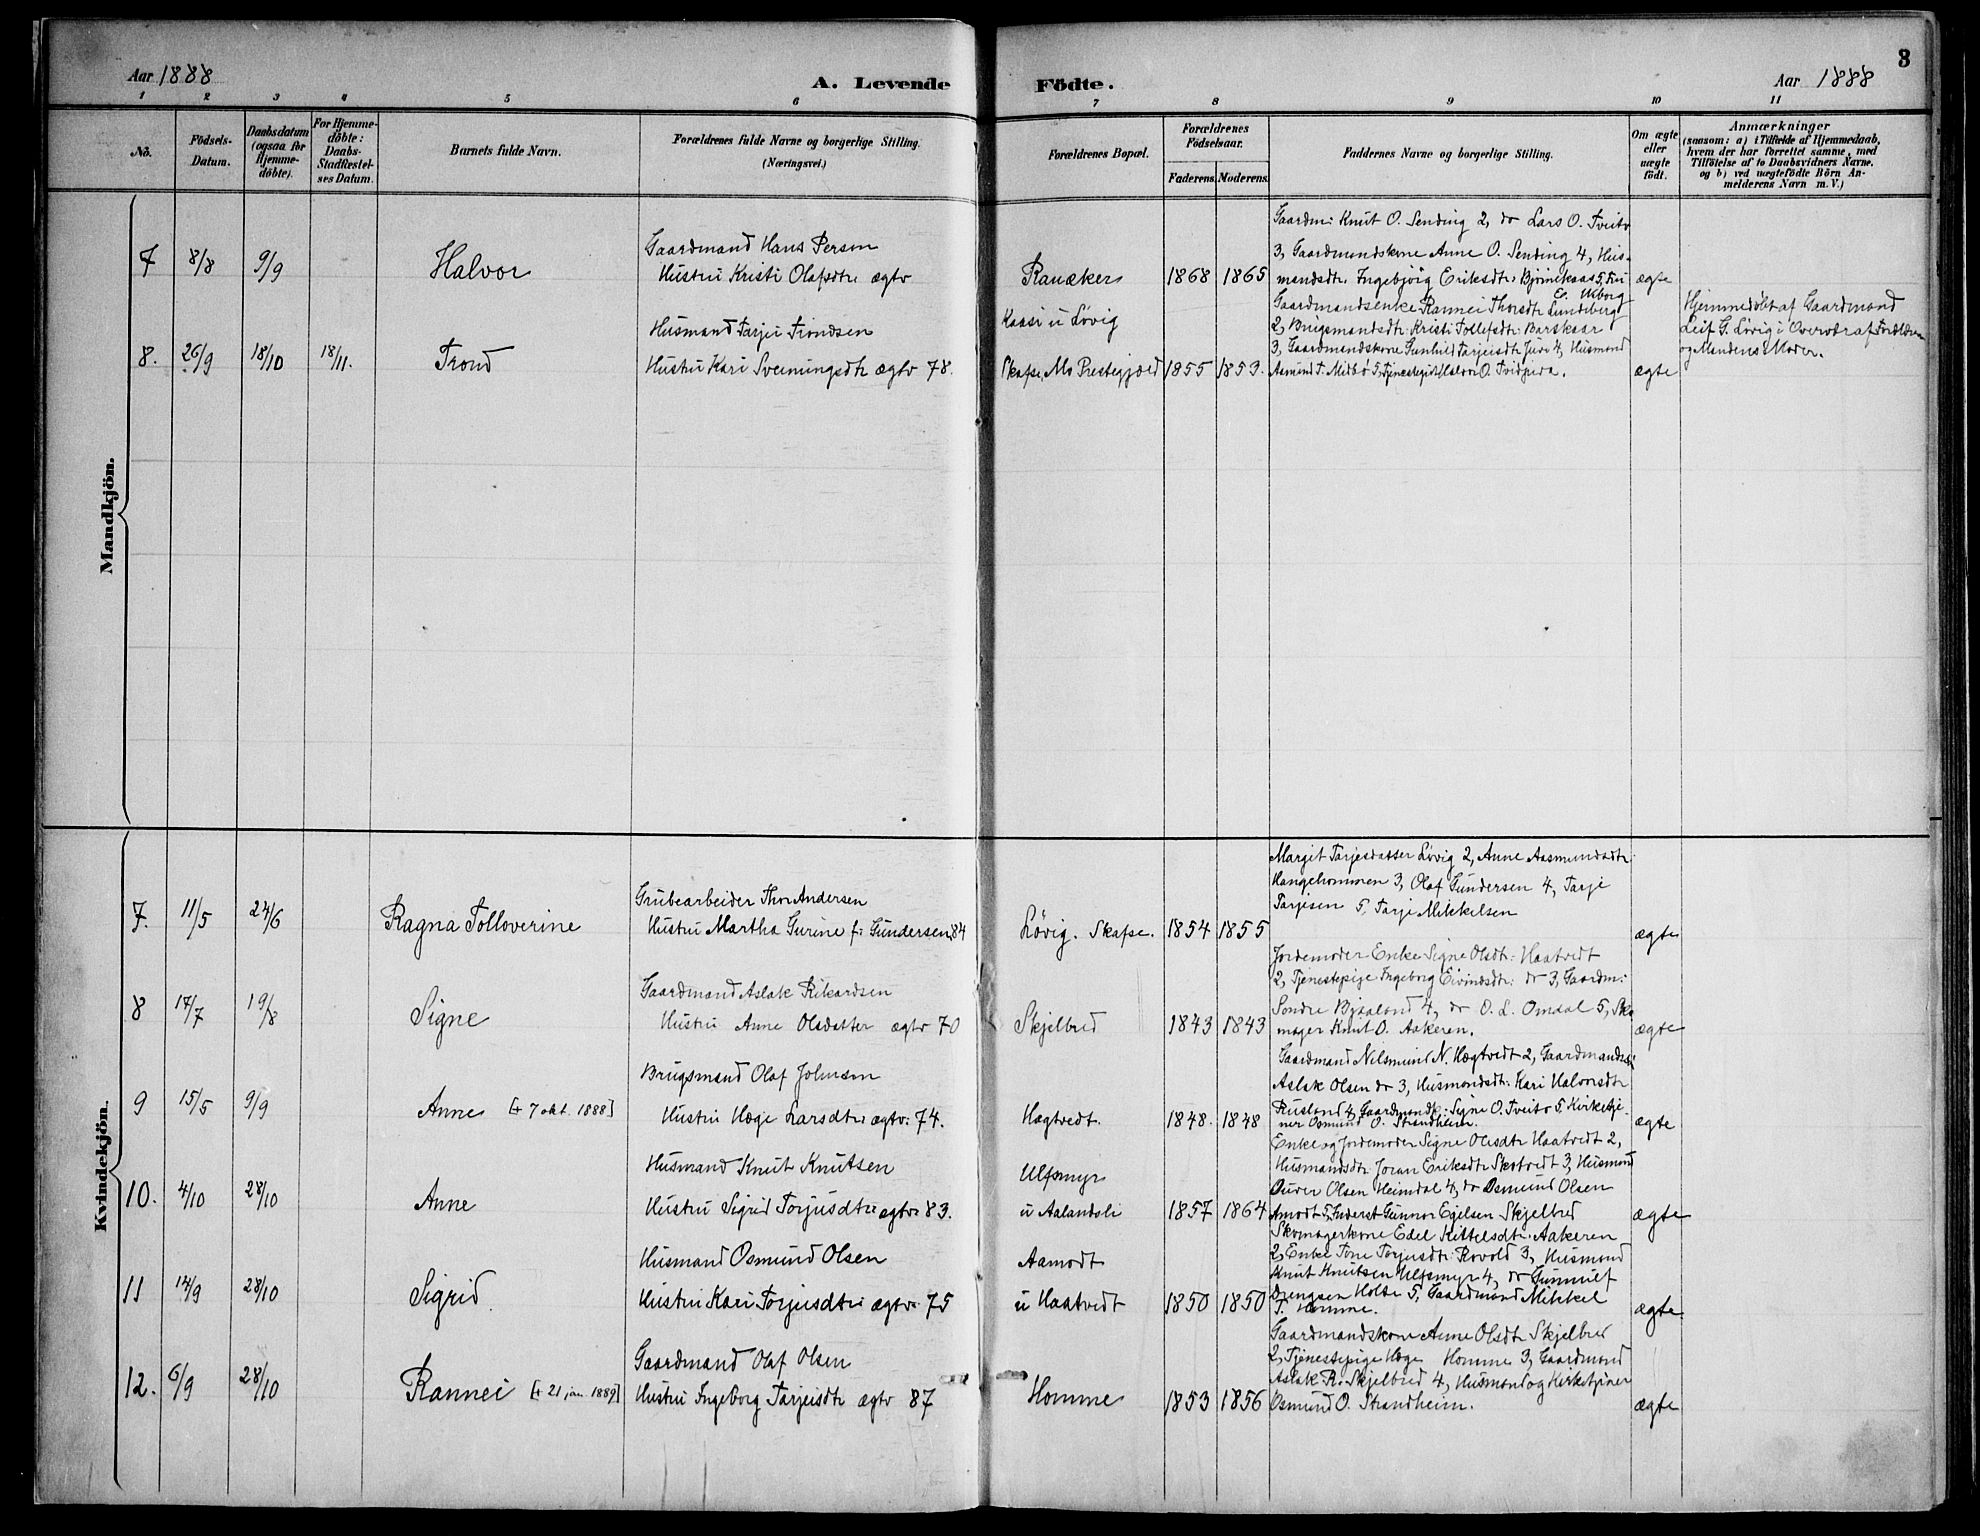 Aar 1888
A. Levende Födte.
Aar 1888
3
1 2 3 4 5 6 7 8 9 10 11
No.
Födsels-Datum.
Daabsdatum (ogsaa for Hjemme-döbte).
For Hjemme-döbte: Daabs-Stadfæstel-ses Datum.
Barnets fulde Navn.
Forældrenes fulde Navne og borgerlige Stilling.
(Næringsvei.)
Forældrenes Bopæl.
Forældrenes Födselsaar.
Faderens. Moderens.
Faddernes Navne og borgerlige Stilling.
Om ægte eller uægte födt.
Anmærkninger
(saasom: a) i Tilfælde af Hjemmedaab,
hvem der har forrettet samme, med
Tilföielse af to Daabsvidners Navne,
og b) ved uægtefödte Börn An-
melderens Navn m.V.)
Mandkjön.
7 8/8 9/9 Halvor
Gaardmand Hans Person
Hustru Kristi Olafsdtr ægtv
Rauæker 1868 1865
Gaardm: Knut O. Sending 2, do Lars O. Tveito
3, Gaardmandskone Anne O. Sending 4, Hus-
mandsdtr. Ingebjörg Eriksdtr Björnekaas 5,
ægte
8. 26/9 18/10 18/11. Trond
Husmand Tarjei Trondsen
Hustru Kari Sveinungsdtr ægtv 78.
Kaasi u Lövig
Skafse, Mo Prestegjæld 1855 1853.
Gaardmandsenke Rannei Thorsdtr Lundeberg
2, Brugsmandsdtr: Kristi Tollefsdtr: Barskaar
3, Gaardmandskone Gunhild Tarjeisdtr Juve 4, Husmand
Asmund T. Midbö 5, Halvor O.
ægte
Hjemmedöbt af Gaardmand
Leif G. Lövig i Overvær af Forældrene
og Mandens Moder.
Kvindekjön.
7. 11/5 24/6 Ragna Tolloverine
Grubearbeider Thor Andersen
Hustru Martha Gurine f: Gundersen, 84
Lövig. Skafse. 1854 1855
Margit Tarjesdatter Lövig 2, Anne Aasmundsdtr:
Hangehommen 3, Olaf Gundersen 4, Tarje
Tarjesen 5, Tarje Mikkelsen
ægte
8 17/7 19/8 Signe
Gaardmand Aslak Rikardsen
Hustru Anne Olsdatter ægtv 70
Skjelbred 1843 1843
Jordemoder Enke Signe Olsdtr: Haatvedt
2, Tjenestepige Ingeborg Eivindsdtr: do 3, Gaardm:
Sondre Bjaaland 4, do O. L. Omdal 5, Sko
mager Knut O. Aakeren.
ægte
9 15/5 9/9 Anne [+ 7 okt. 1888]
Brugsmand Olaf Johnsen
Hustru Hæge Larsdtr ægtv: 74.
Hægtvedt. 1848. 1848
Gaardmand Nilsmund N. Hægtvedt 2,
Aslak Olsen do 3, Husmandsdtr: Kari Halvorsdtr
Rusland 4, Signe O. Tveito 5, Kirketje-
ner Osmund O. Strandheim.
ægte
10. 4/10 28/10 Anne
Husmand Knut Knutsen
Hustru Sigrid Torjusdtr ægtv 83.
Ulfsmyr
u Aalandsli 1857 1864
Enke og Jordemoder Signe Olsdtr Haatvedt 2,
Husmandsdtr: Joran Eriksdtr Skotvedt 3, Husmand
Ouver Olsen Heimdal 4, do Osmund Olsen
Amodt 5, Inderst Gunnar Egilsen Skjelbred
ægte
11 14/9 28/10 Sigrid.
Husmand Osmund Olsen
Hustru Kari Torjusdtr ægtv 75
Aamodt
u Haatvedt 1850 1850
Skomagerkone Edel Kittelsdtr. Aakeren
2, Enke Tone Torjusdtr: Rovold 3, Husmand
Knut Knutsen Ulfsmyr 4, do Gunnulf
Drengsen Holte 5, Gaardmand Mikkel
T. Homme.
ægte
12. 6/9 28/10 Rannei [+ 21 jan. 1889]
Gaardmand Olaf Olsen
Hustru Ingeborg Tarjeisdtr ægtv 87
Homme 1853 1856
Gaardmandskone Anne Olsdtr Skjelbred
2, Tjenestepige Hæge Homme 3, Gaardmand
Aslak R. Skjelbred 4, Husmand og Kirketjener
Osmund O. Strandheim.
ægte